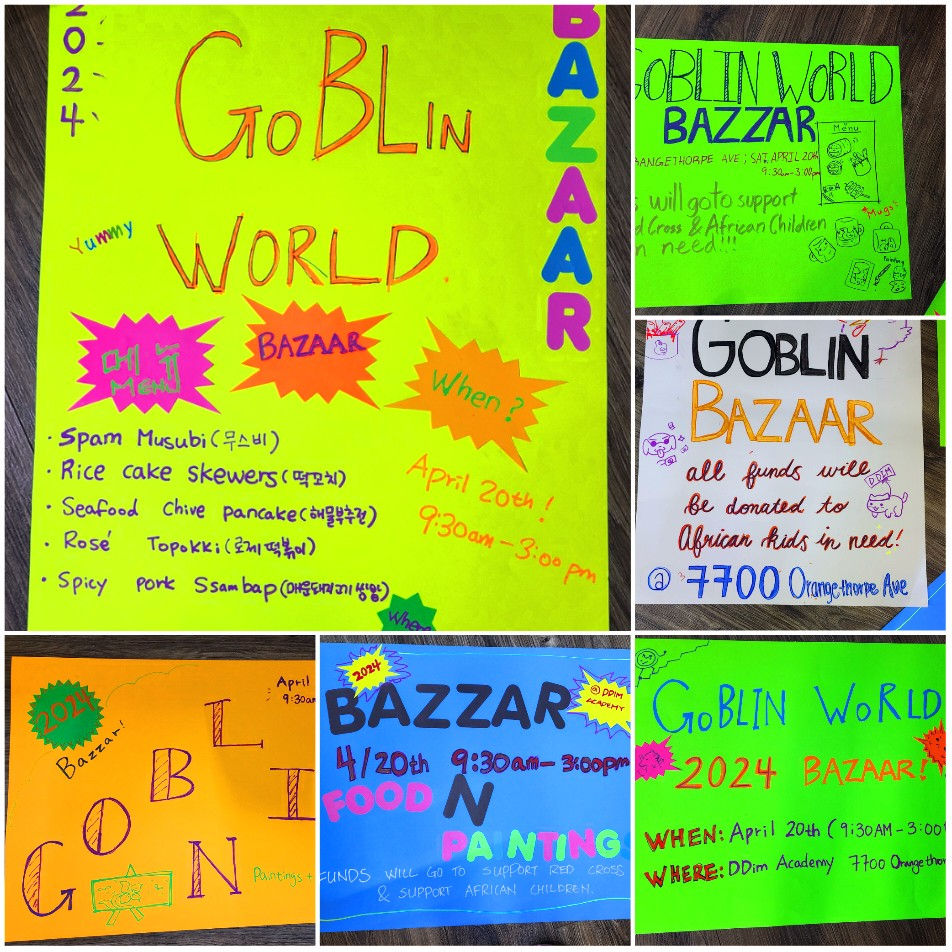 2024
GOBLIN
WORLD.
BAZAAR
Yummy
메뉴
MENU
BAZAAR
When?
· Spam Musubi (무스비)
· Rice cake skewers (떡꼬치)
· Seafood Chive pancake (해물부추전)
· Rosé Topokki (로제 떡볶이)
· Spicy pork Ssambap (매운돼지고기 쌈밥)
April 20th!
9:30am - 3:00 pm
Where
GOBLIN WORLD
BAZZAR
ANGETHORPE AVE ; SAT. APRIL 20th
9:30am - 3:00pm
Menu
s will go to support
d Cross & African Children
n need!!!
Mugs
Painting
GOBLIN
BAZAAR
all funds will
be donated to
African kids in need!
DDIM
@ 7700 Orangethorpe Ave
2024
Bazzar!
April
9:30am
GOBLIN
Paintings +
2024
BAZZAR
@ DDim
ACADEMY
4/20th 9:30am - 3:00pm
FOOD N
PAINTING
FUNDS WILL GO TO SUPPORT RED CROSS
& SUPPORT AFRICAN CHILDREN.
GOBLIN WORLD
2024 BAZAAR!
WHEN: April 20th (9:30AM - 3:00
WHERE: DDim Academy 7700 Orangethor